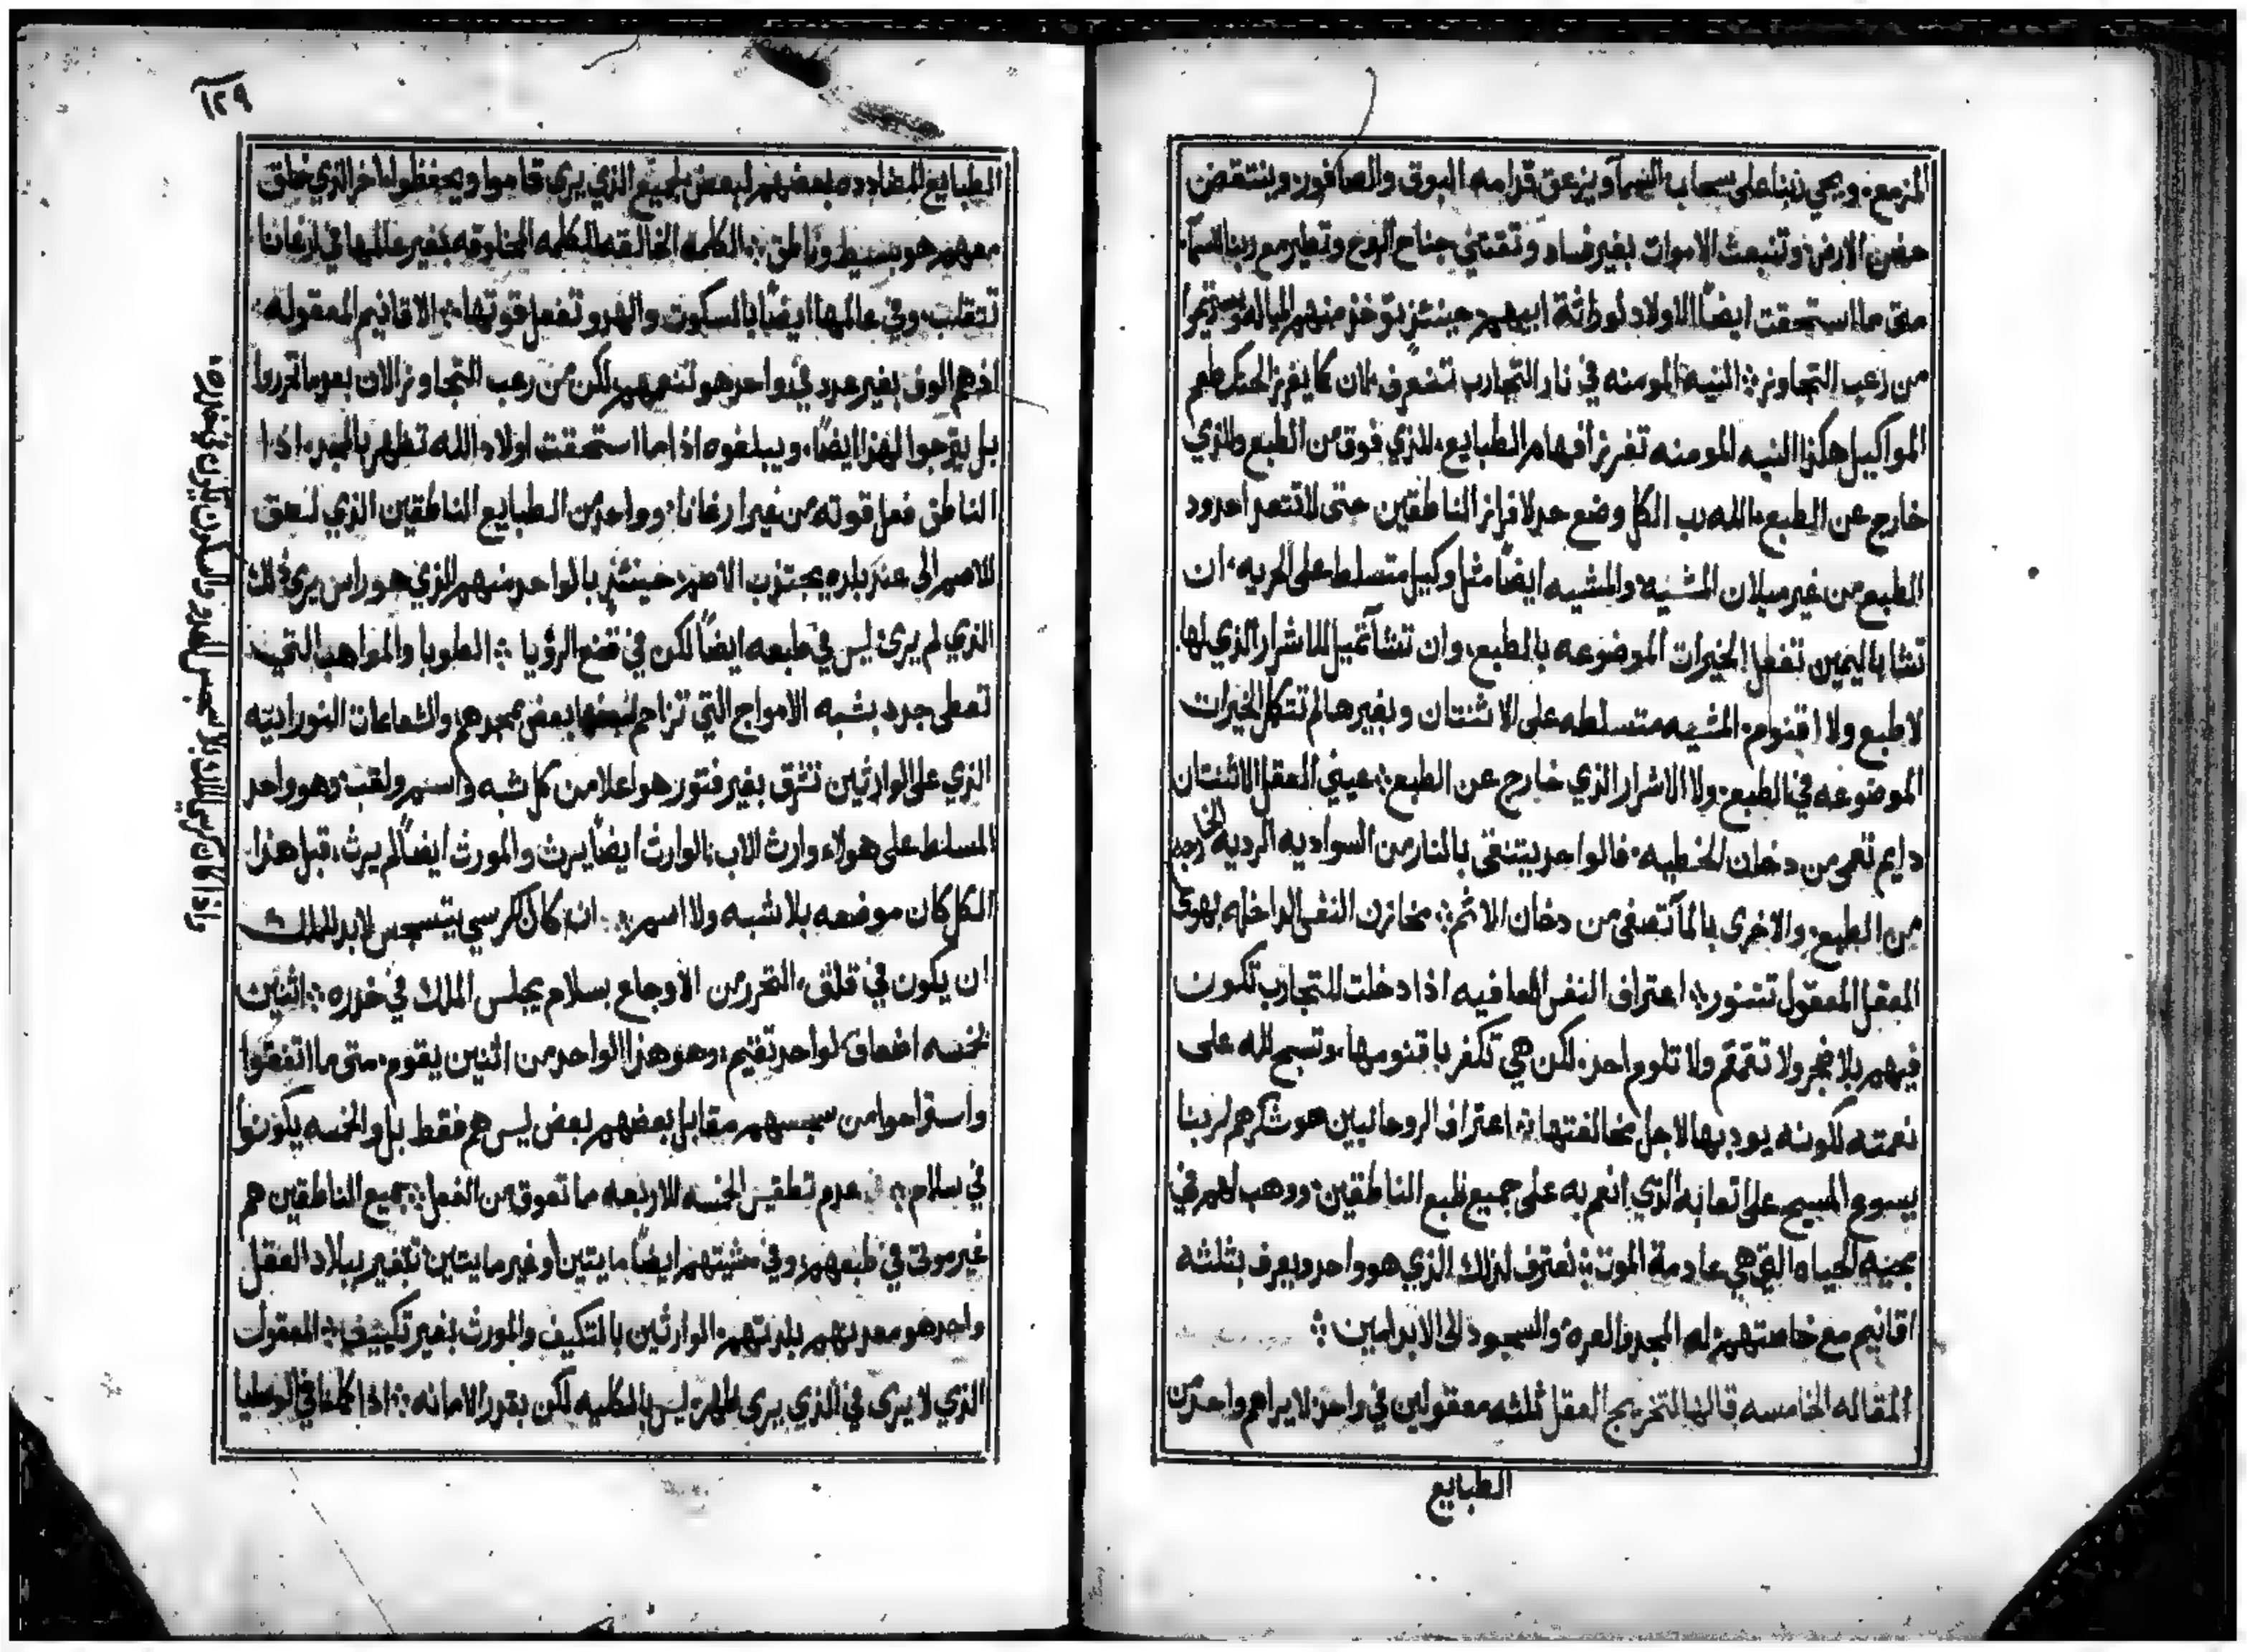 المزمع. ويجي ربنا على سحاب السمآ ويزعق قدامه البوق والصافور وينتقض
حضن الارض وتنبعث الاموات بغير فساد وتقتني جناح الروح وتطير مع ربنا للسمآ.
متى ما استحقت ايضًا الاولاد لوراثة ابيهم حينئذ تؤخذ منهم
من رعب التجاوز ⁘ النيه المومنه في نار التجارب لان كما يفرز الحنك طعم
المواكيل هكذا النيه المومنه تفرز افهام الطبايع. للذي فوق من الطبع وللذي
خارج عن الطبع. الله رب الكل وضع حد لافراز الناطقين حتى لا تتعدا حدود
الطبع من غير ميلان المشيه. والمشيه ايضًا مثل وكيل متسلط على الحريه. ان
تشا باليمين تفعل الخيرات الموضوعه بالطبع. وان تشآ تميل للاشرار الذي لها
لا طبع ولا اقنوم. المشيه متسلطه على الاثنتان وبغيرها لم تتكل الخيرات
الموضوعه في الطبع. ولا الاشرار الذي خارج عن الطبع ⁘ عيني العقل الاثنتان
دايم تعمى من دخان الخطيه. فالواحد يتنقى بالنار من السواديه الرديه الخارجه
من الطبع. والاخرى بالمآ تصفى من دخان الاثم ⁘ مخازن النفس الداخله بهوى
العقل المعقول تتنور ⁘ اعتراف النفس المعافيه اذا دخلت للتجارب تكون
فيهم بلا ضجر ولا تقمقم ولا تلوم احد. لكن هي تكفر باقنومها. وتسبح لله على
نعمته لكونه يودبها لاجل مخالفتها ⁘ اعتراف الروحانيين هو شكرهم لربنا
يسوع المسيح على اتعابه الذي انعم به على جميع طبع الناطقين. ووهب لهم في
مجيه الحياه التي هي عادمة الموت ⁘ نعترف لذلك الذي هو واحد ويعرف بثلثه
اقانيم مع خاصتهم. له المجد والعزه والسجود الى الابد امين ⁘
المقاله الخامسه قالها لتخريج العقل ثلثه معقولين في واحد. لا يراهم واحد من
الطبايع
١٢٩
الطبايع المضادده بعضهم لبعض لجميع الذي يرى قاموا ويحفظوا. لآخر الذي خلق
معهم هو بسيط وناطق ⁘ الكلمه الخالقه للكلمه المخلوقه بغير عالمها في ارغانا
تتقلب. وفي عالمها ايضًا بالسكوت والهدو تفعل قوتها ⁘ الاقانيم المعقوله.
اذ هم الوف بغير عدد في واحد هو تنعمهم لكن من رعب التجاوز الان بعد ما تحرروا
بل يترجوا لهذا ايضًا. ويبلغوه اذا ما استحقت اولاد الله تظهر بالمجد. اذا
الناطق فعل قوته من غير ارغانا. وواحد من الطبايع الناطقين الذي لنعق
للاصم الى عند بلده يجتذب الاصم. حينئذ بالواحد منهم الذي هو راس يرى ذلك
الذي لم يرى. ليس في طبعه ايضًا لكن في قنع الرؤيا ⁘ الطوبا والمواهب التي
تعطى جدد بشبه الامواج التي تزاحم بعضها بعض بمجدهم والشعاعات النورانيه
الذي على الوارثين تشرق بغير فتور هو اعلا من كل شبه واسم ولقب. وهو واحد
المسلط على هولاء وارث الاب. الوارث ايضًا يرث والمورث ايضًا لم يرث. قبل هذا
الكل كان موضعه بلا شبه ولا اسم ⁘ ان كان كرسي يتسجس لابد للملك
ان يكون في قلق. التحرر من الاوجاع بسلام يجلس الملك في خدره ⁘ اثنين
لخمسه اضعاف لواحد تقيم. وهو هذا الواحد من اثنين يقوم. متى ما اتفقوا
واستراحوا من سجسهم مقابل بعضهم بعض ليس هم فقط بل والخمسه يكونوا
في سلام ⁘ عدم تطقيس الخمسه للاربعه ما تعوق من الفعل ⁘ جميع الناطقين هم
غير موتى في طبعهم. وفي مشيتهم ايضًا مايتين وغير مايتين تتغير ببلاد العقل
واحد هو معربهم بلدتهم. الوارثين بالتكيف والمورث بغير تكييف ⁘ المعقول
الذي لا يرى في الذي يرى ظهر. ليس بالكليه لكن بقدر الامانه ⁘ اذا كلنا في الوسط
واذا كان كرسي الملك بلا سجس